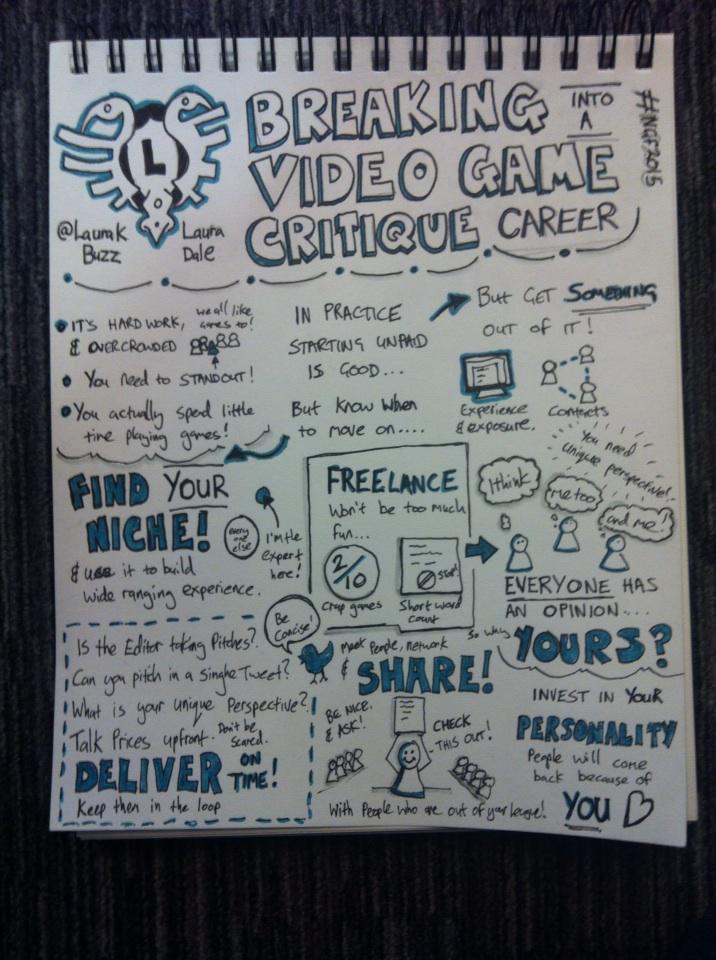 L
@LauraK
Buzz
Laura
Dale
BREAKING INTO
A
VIDEO GAME
CRITIQUE CAREER
#NGF2015
IT'S HARD WORK, we all like
games to!
& OVERCROWDED
You need to STANDOUT!
You actually spend little
time playing games!
IN PRACTICE
STARTING UNPAID
IS GOOD...
But know when
to move on....
But GET SOMETHING
OUT OF IT!
Experience
& exposure.
Contacts
FIND YOUR
NICHE!
& use it to build
wide ranging experience.
every
one
else
I'm the
expert
here!
FREELANCE
Won't be too much
fun...
2/10
Crap games
Stop!
Short word
count
You need
unique perspective!
I think
me too
and me!
EVERYONE HAS
AN OPINION...
So why
YOURS?
Is the Editor taking Pitches?
Can you pitch in a Single Tweet?
What is your unique Perspective?
Talk Prices upfront. Don't be
Scared.
DELIVER ON
TIME!
Keep them in the loop
Be
Concise!
Meet People, network
& SHARE!
BE NICE.
& ASK!
CHECK
THIS OUT!
With People who are out of your league!
INVEST IN YOUR
PERSONALITY
People will come
back because of
YOU